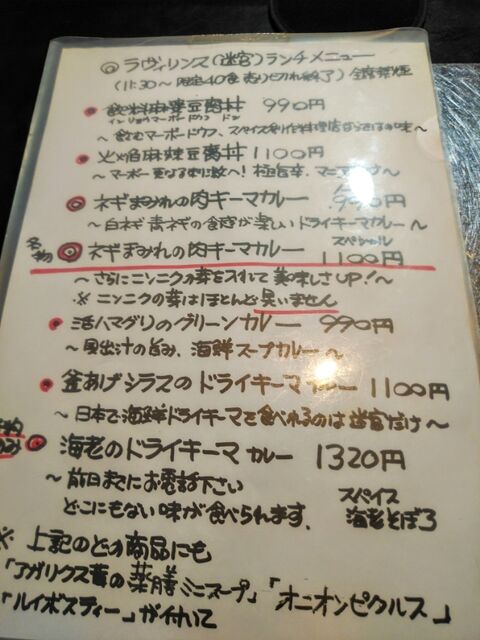 ◎ ラヴィリンス(迷宮)ランチメニュー
(11:30〜限定40食 売り切れ終了) 全席禁煙
飲料麻婆豆腐丼 990円
インリョウマーボードウフ ドン
〜飲むマーボードウフ、スパイス創作料理店ならではの味〜
火焔麻辣豆腐丼 1100円
〜マーボー更なる刺激へ!極旨辛、マニアック〜
ネギまみれの肉キーマカレー 990円
〜白ネギ青ネギの食感が楽しいドライキーマカレー〜
名物 ◎ ネギまみれの肉キーマカレー スペシャル 1100円
〜さらにニンニクの芽を入れて美味しさUP!〜
※ニンニクの芽はほとんど臭いません
活ハマグリのグリーンカレー 990円
〜貝出汁の旨み、海鮮スープカレー〜
釜あげシラスのドライキーマカレー 1100円
〜日本で海鮮ドライキーマを食べれるのは迷宮だけ〜
予約のみ 海老のドライキーマカレー 1320円
〜前日までにお電話下さい
どこにもない味が食べられます、スパイス海老そぼろ
※ 上記のどの商品にも
「アガリクス茸の薬膳ミニスープ」「オニオンピクルス」
「ルイボスティー」が付いて